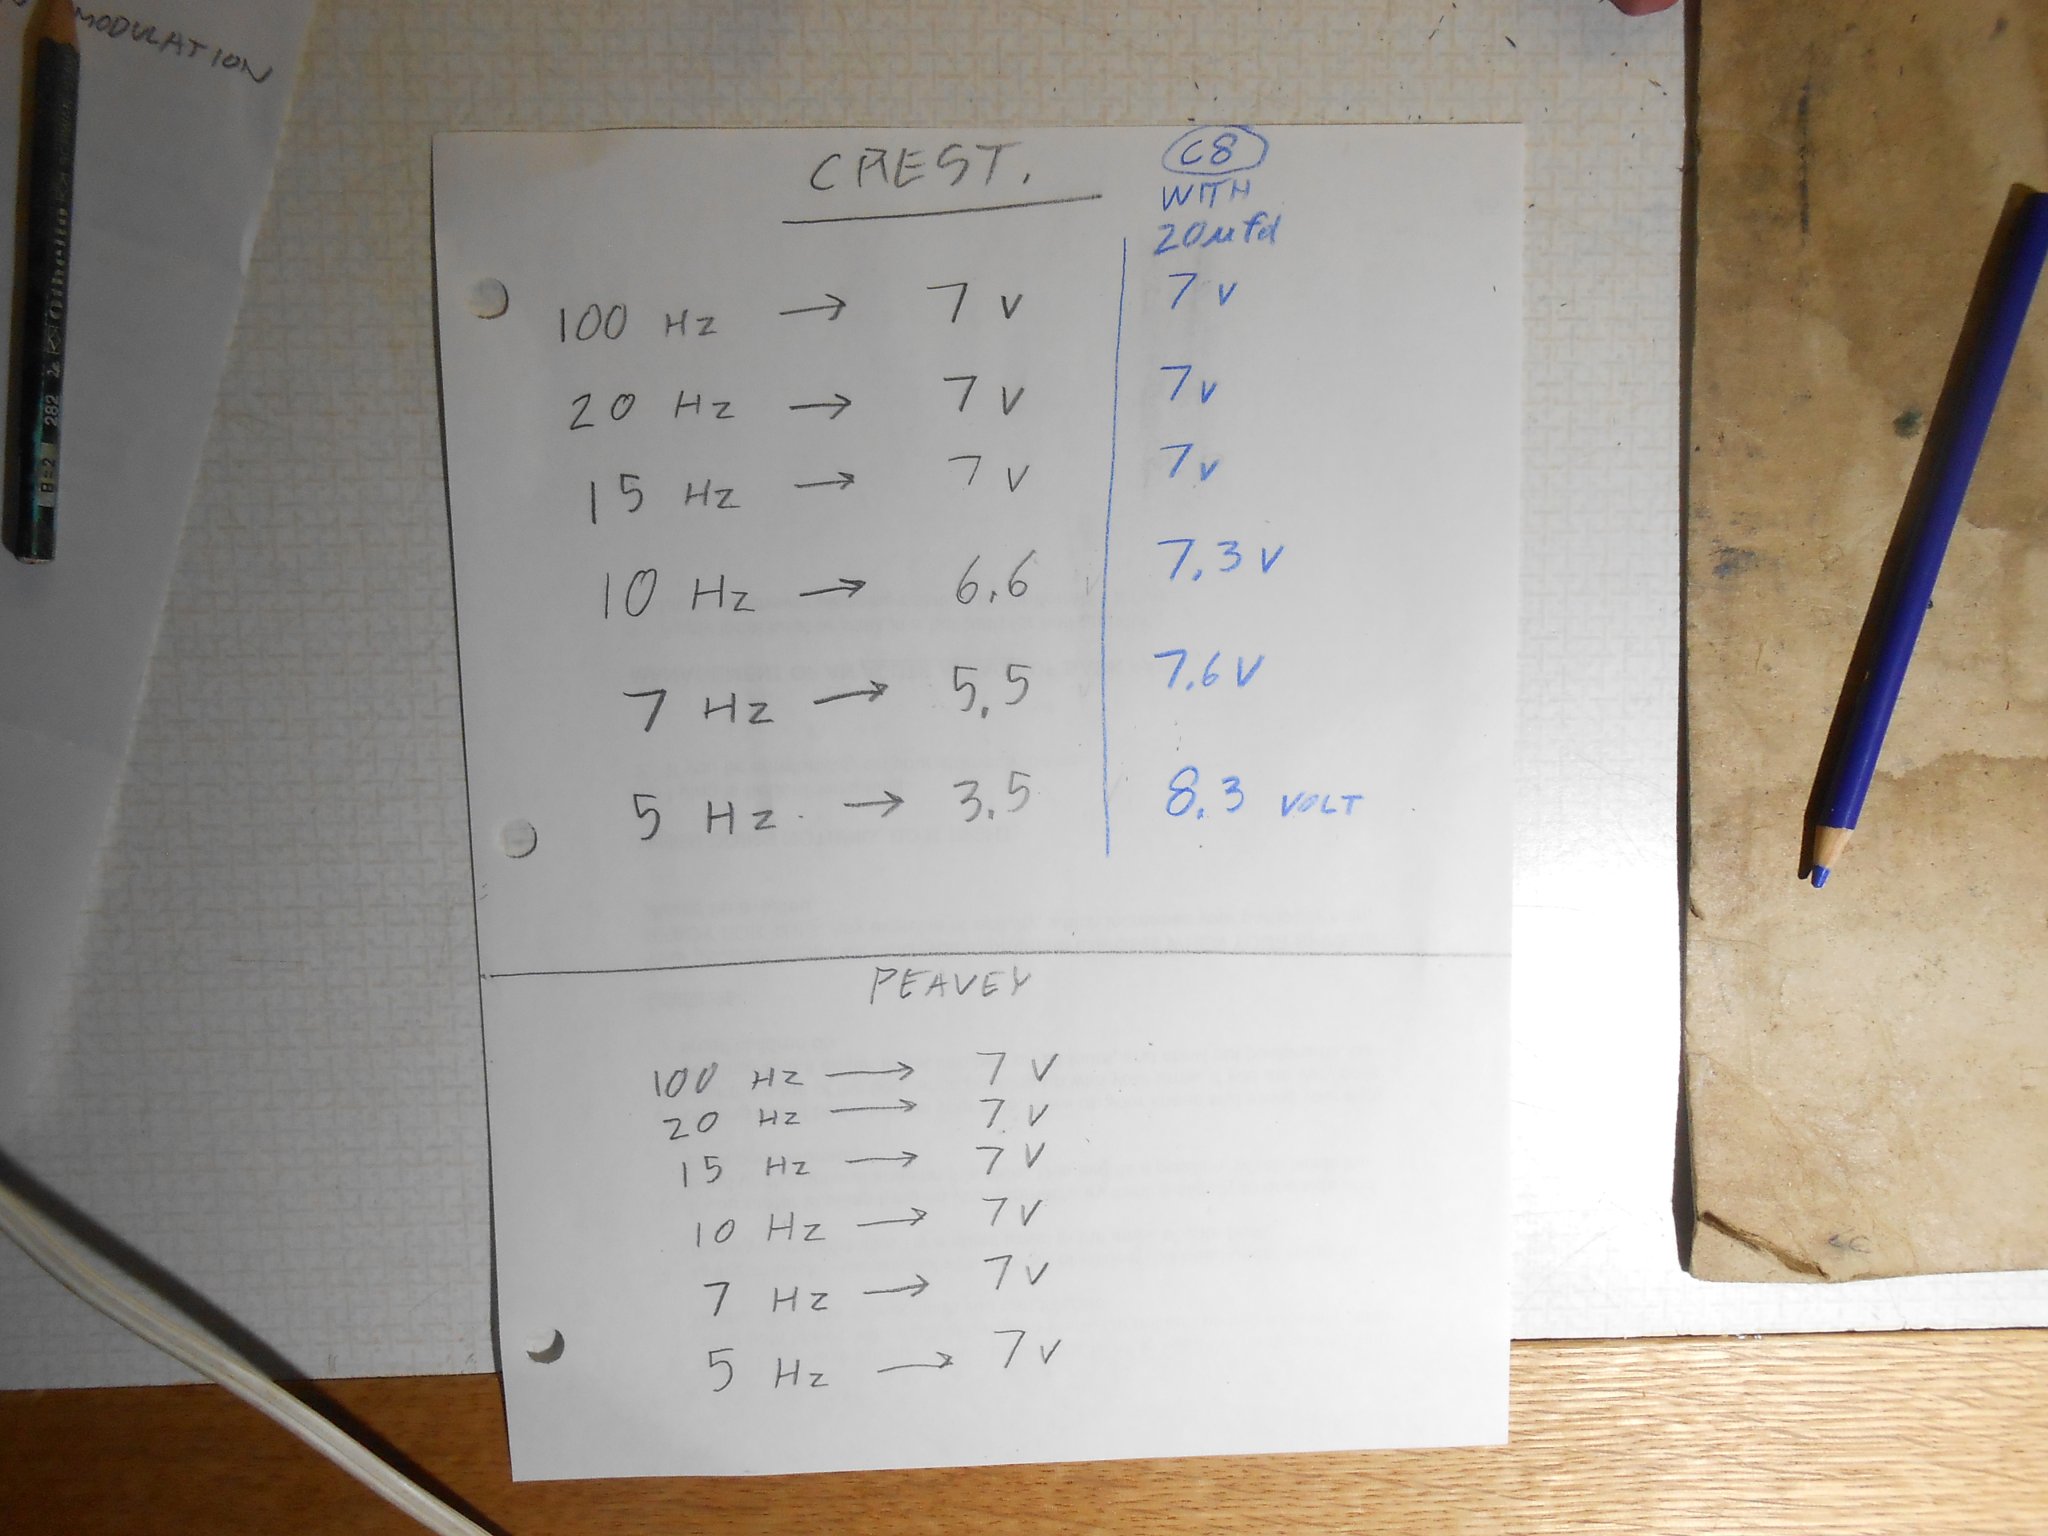 MODULATION
Othello
282
B=2
CREST.
C8
WITH
20 µfd
100 Hz → 7 v 7 v
20 Hz → 7 v 7 v
15 Hz → 7 v 7 v
10 Hz → 6.6 7.3 v
7 Hz → 5.5 7.6 V
5 Hz → 3.5 8.3 VOLT
PEAVEY
100 Hz → 7 V
20 Hz → 7 V
15 Hz → 7 V
10 Hz → 7 V
7 Hz → 7 V
5 Hz → 7 V